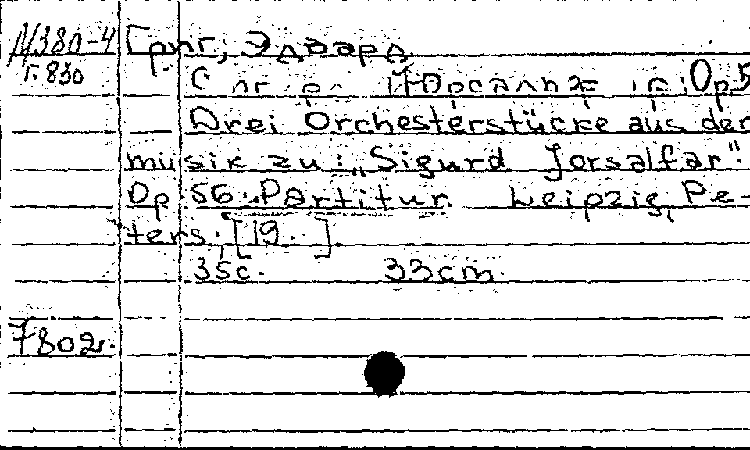 М380-4 Григ, Эдвард
Г.830
Op. 5
Drei Orchesterstücke aus der
musik zu: „Sigurd Jorsalfar".
Op. 56. Partitur. Leipzig, Pe-
ters, [19.. ].
35c. 33cm.
7802.